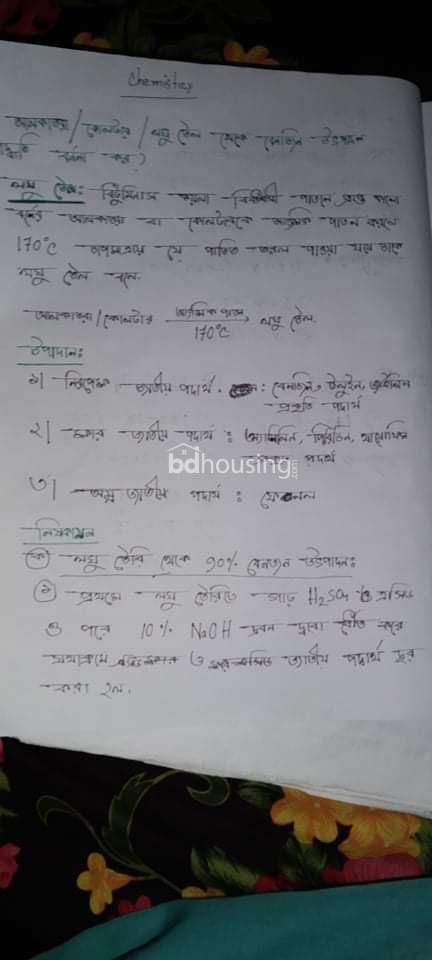 Chemistry
আলকাতরা / কোলটার / লঘু তৈল থেকে বেনজিন উৎপাদন
পদ্ধতি বর্ণনা কর?
লঘু তৈল: বিটুমিনাস কয়লা পাতনে প্রাপ্ত কালো
বর্ণের আলকাতরা বা কোলটারকে আংশিক পাতন করলে
170°C তাপমাত্রায় যে পাতিত তরল পাওয়া যায় তাকে
লঘু তৈল বলে.
আলকাতরা / কোলটার আংশিক পাতন 170°C লঘু তৈল.
উপাদান:
১| নিরপেক্ষ জাতীয় পদার্থ. : বেনজিন, টলুইন, জাইলিন
প্রভৃতি পদার্থ
২| ক্ষার জাতীয় পদার্থ : অ্যানিলিন, পিরিডিন,
পদার্থ
bdhousing.com
৩| অম্ল জাতীয় পদার্থ : ফেনল
নিষ্কাশন
(ক) লঘু থেকে 90% বেনজিন উৎপাদন:
১ প্রথমে লঘু গাঢ় H₂SO₄ এসিড
ও পরে 10% NaOH দ্রবন দ্বারা ধৌত করে
যথাক্রমে ও জাতীয় পদার্থ দূর
করা হল.